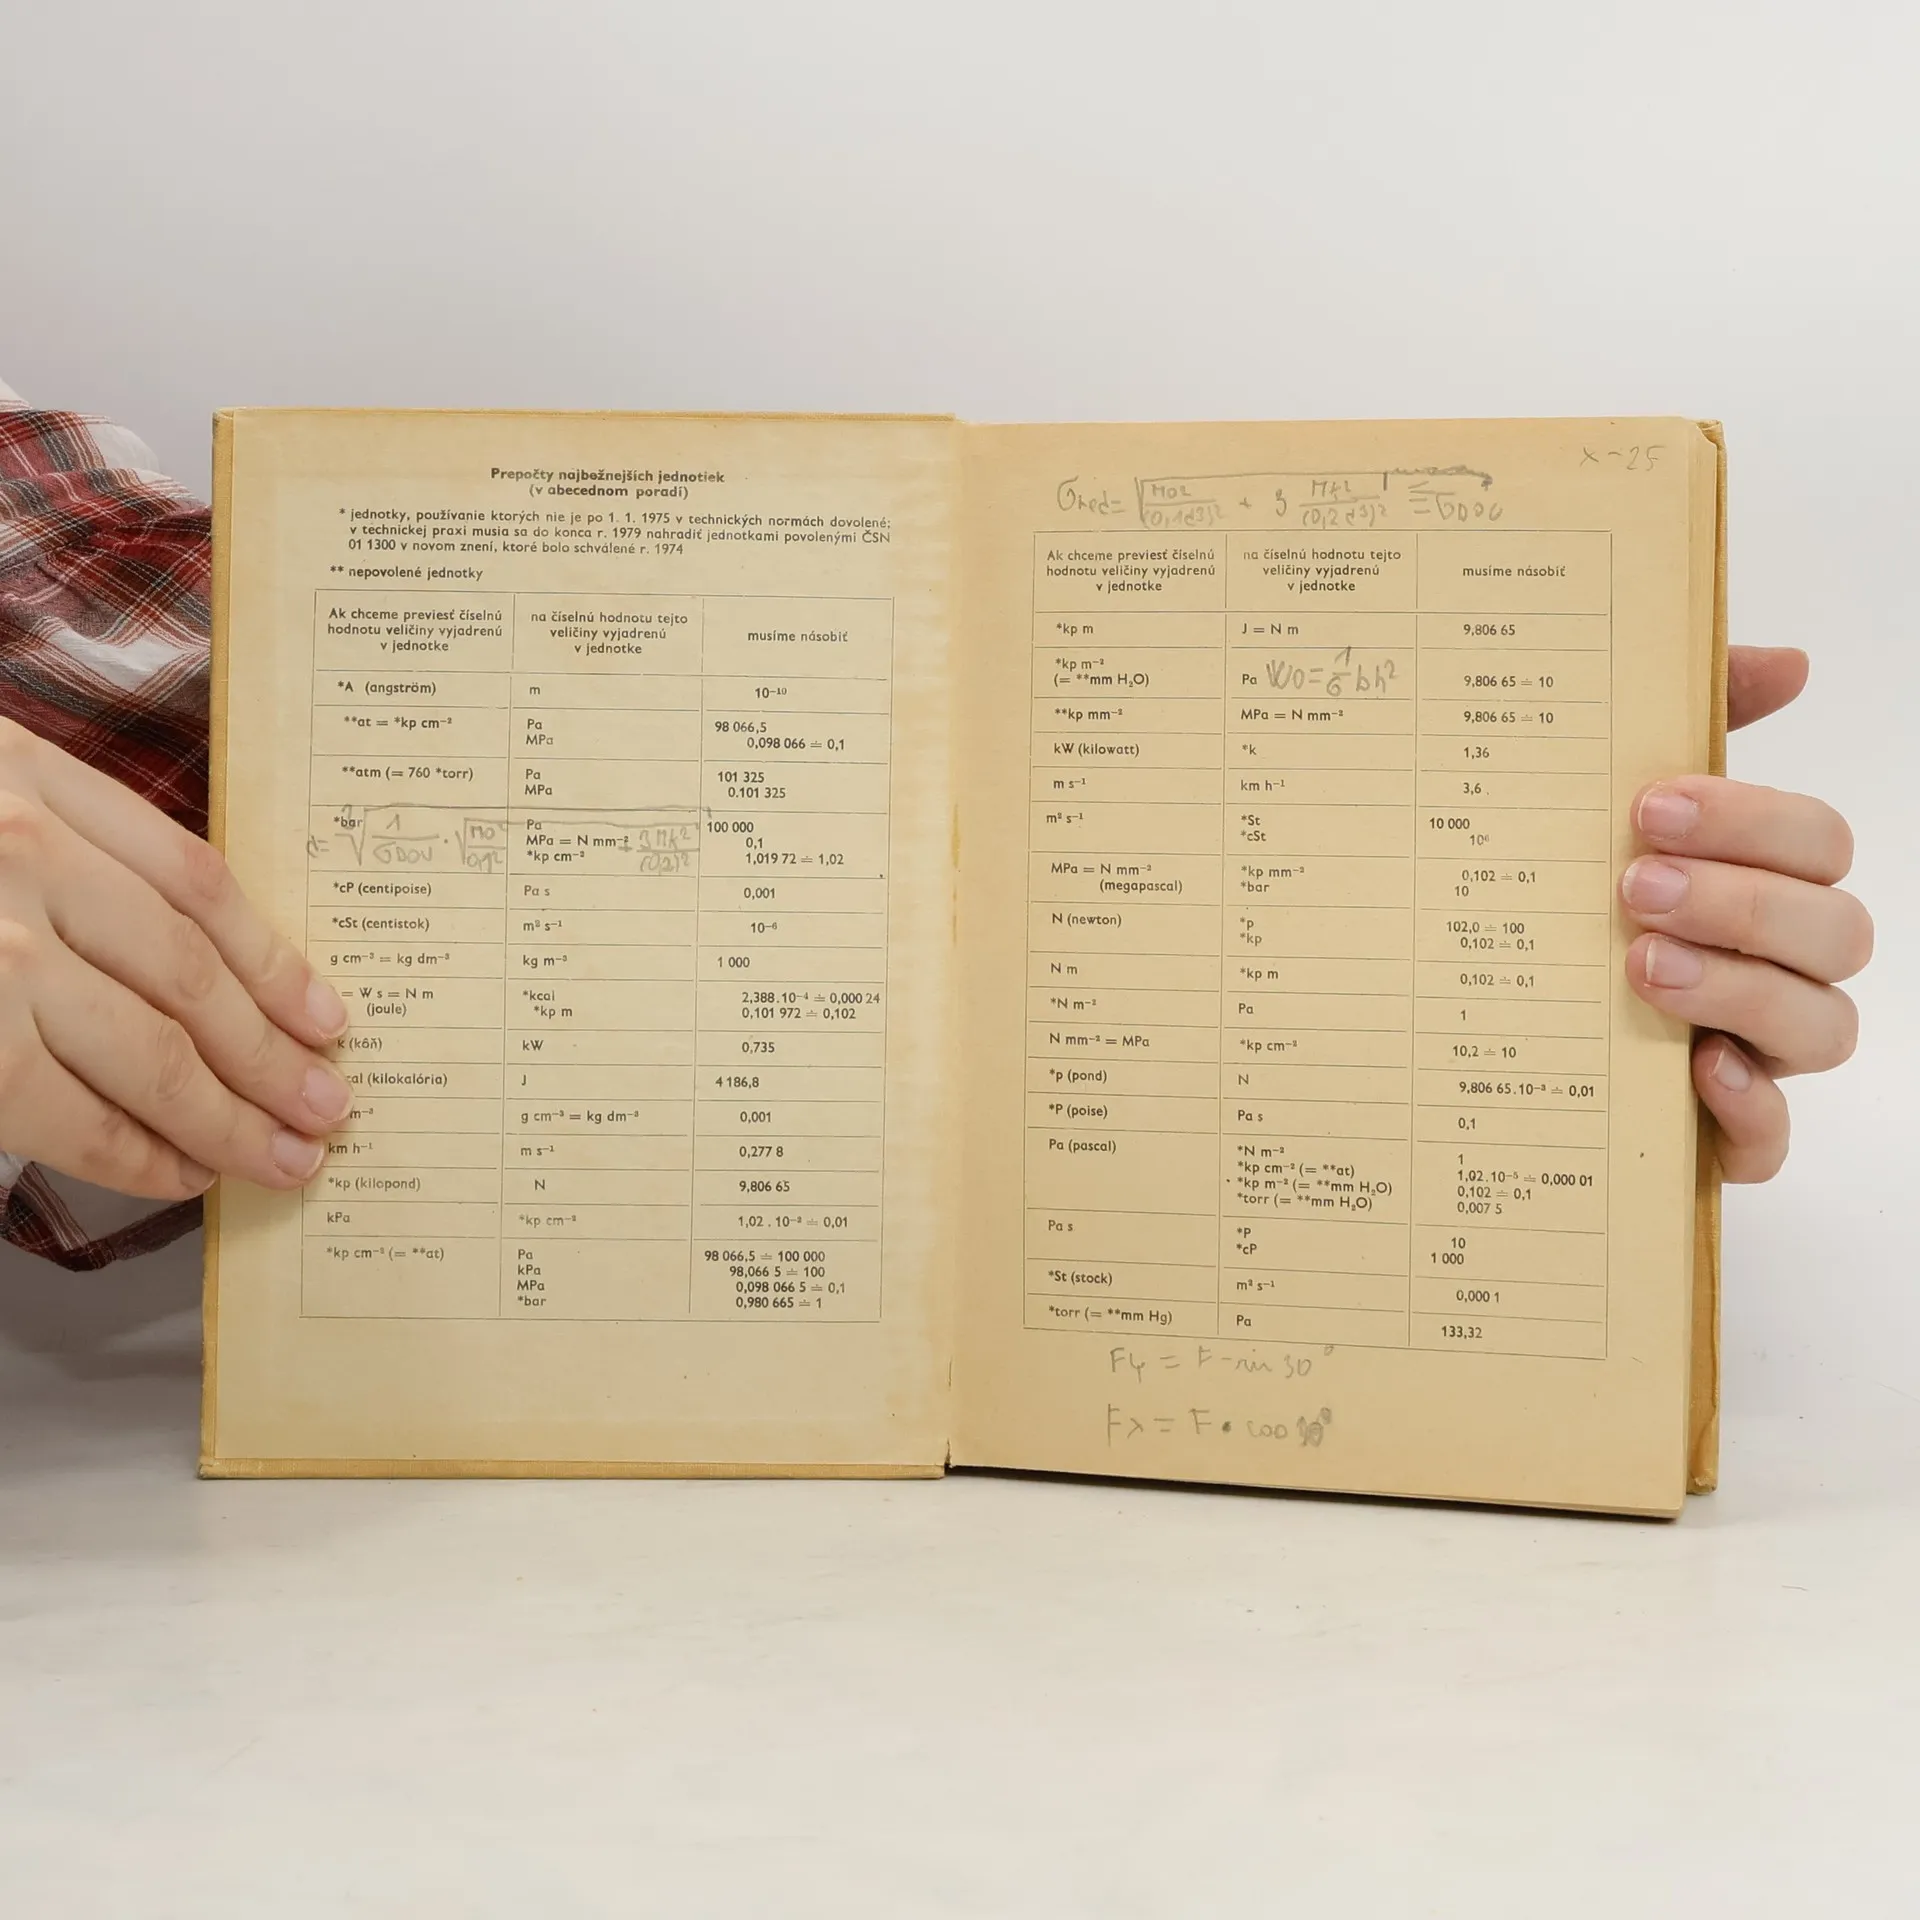 Prepočty najbežnejších jednotiek
(v abecednom poradí)
* jednotky, používanie ktorých nie je po 1. 1. 1975 v technických normách dovolené;
v technickej praxi musia sa do konca r. 1979 nahradiť jednotkami povolenými ČSN
01 1300 v novom znení, ktoré bolo schválené r. 1974
** nepovolené jednotky
Ak chceme previesť číselnú hodnotu veličiny vyjadrenú v jednotke | na číselnú hodnotu tejto veličiny vyjadrenú v jednotke | musíme násobiť
*A (angström) | m | 10⁻¹⁰
**at = *kp cm⁻² | Pa | 98 066,5
MPa | 0,098 066 ≐ 0,1
**atm (= 760 *torr) | Pa | 101 325
MPa | 0.101 325
*bar | Pa | 100 000
MPa = N mm⁻² | 0,1
*kp cm⁻² | 1,019 72 ≐ 1,02
*cP (centipoise) | Pa s | 0,001
*cSt (centistok) | m² s⁻¹ | 10⁻⁶
g cm⁻³ = kg dm⁻³ | kg m⁻³ | 1 000
= W s = N m | *kcal | 2,388.10⁻⁴ ≐ 0,000 24
(joule) | *kp m | 0,101 972 ≐ 0,102
k (kôň) | kW | 0,735
cal (kilokalória) | J | 4 186,8
m⁻³ | g cm⁻³ = kg dm⁻³ | 0,001
km h⁻¹ | m s⁻¹ | 0,277 8
*kp (kilopond) | N | 9,806 65
kPa | *kp cm⁻² | 1,02 . 10⁻² ≐ 0,01
*kp cm⁻² (= **at) | Pa | 98 066,5 ≐ 100 000
kPa | 98,066 5 ≐ 100
MPa | 0,098 066 5 ≐ 0,1
*bar | 0,980 665 ≐ 1
x-25
σred = √(Mo²/(0,1d3)² + 3 Mk²/(0,2d3)²) ≤ σDOV
Ak chceme previesť číselnú hodnotu veličiny vyjadrenú v jednotke | na číselnú hodnotu tejto veličiny vyjadrenú v jednotke | musíme násobiť
*kp m | J = N m | 9,806 65
*kp m⁻²
(= **mm H₂O) | Pa Wo = 1/6 bh² | 9,806 65 ≐ 10
**kp mm⁻² | MPa = N mm⁻² | 9,806 65 ≐ 10
kW (kilowatt) | *k | 1,36
m s⁻¹ | km h⁻¹ | 3,6
m² s⁻¹ | *St | 10 000
*cSt | 10⁶
MPa = N mm⁻² | *kp mm⁻² | 0,102 ≐ 0,1
(megapascal) | *bar | 10
N (newton) | *p | 102,0 ≐ 100
*kp | 0,102 ≐ 0,1
N m | *kp m | 0,102 ≐ 0,1
*N m⁻² | Pa | 1
N mm⁻² = MPa | *kp cm⁻² | 10,2 ≐ 10
*p (pond) | N | 9,806 65.10⁻³ ≐ 0,01
*P (poise) | Pa s | 0,1
Pa (pascal) | *N m⁻² | 1
*kp cm⁻² (= **at) | 1,02.10⁻⁵ ≐ 0,000 01
*kp m⁻² (= **mm H₂O) | 0,102 ≐ 0,1
*torr (= **mm H₂O) | 0,007 5
Pa s | *P | 10
*cP | 1 000
*St (stock) | m² s⁻¹ | 0,000 1
*torr (= **mm Hg) | Pa | 133,32
Fy = F - sin 30°
Fx = F . cos 30°